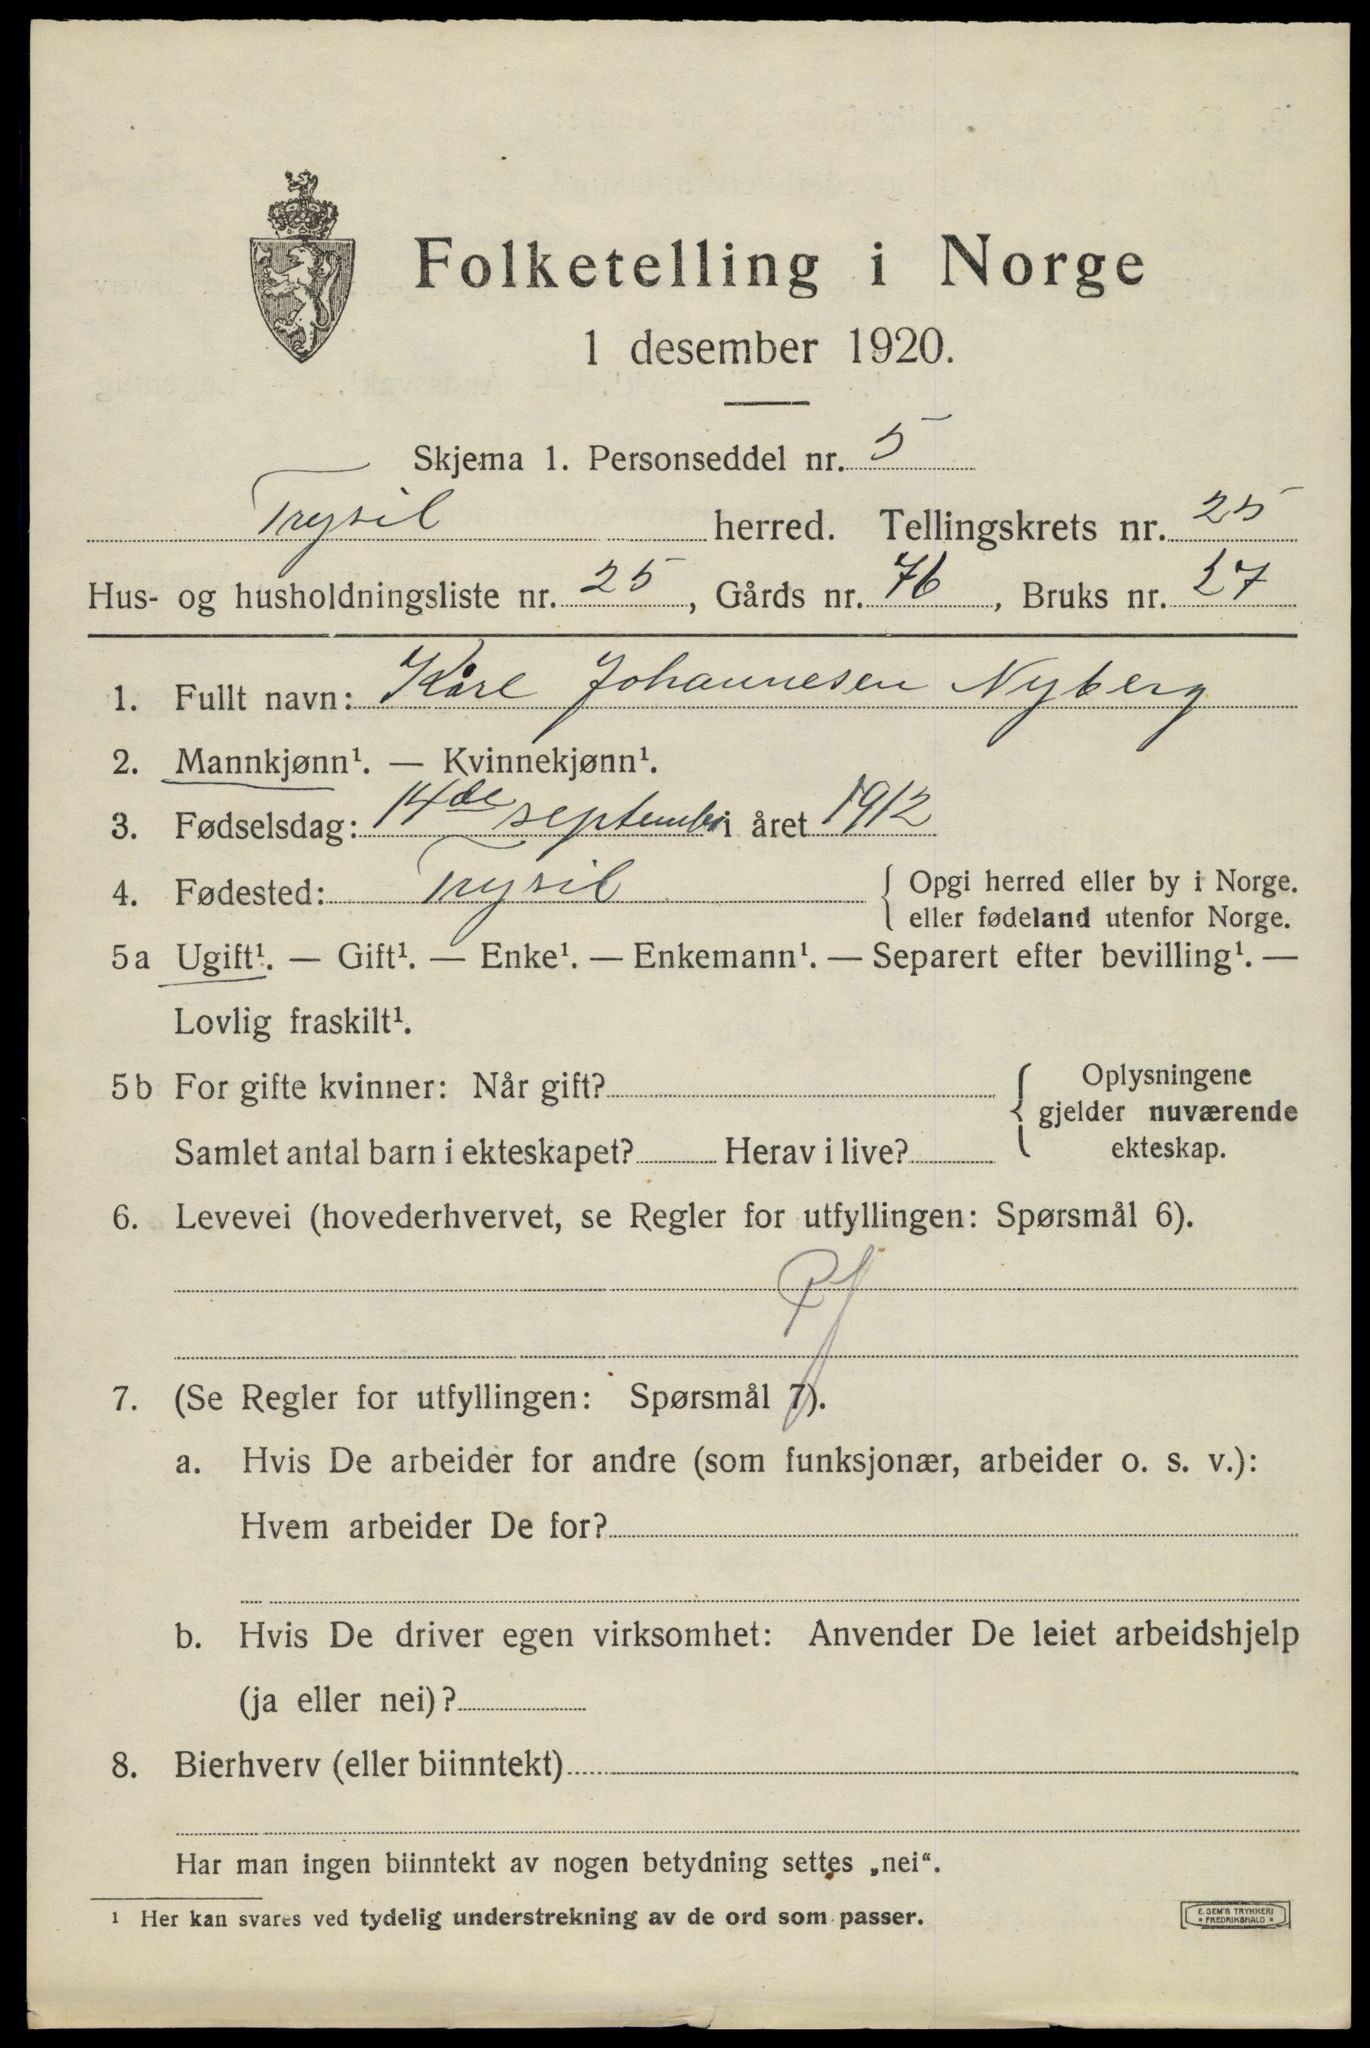 Folketelling i Norge
1 desember 1920.
Skjema 1. Personseddel nr. 5
Trysil herred. Tellingskrets nr. 25
Hus- og husholdningsliste nr. 25, Gårds nr. 76, Bruks nr. 27
1. Fullt navn: Kåre Johannesen Nyberg
2. Mannkjønn¹. — Kvinnekjønn¹.
3. Fødselsdag: 14de september i året 1912
4. Fødested: Trysil { Opgi herred eller by i Norge.
eller fødeland utenfor Norge.
5a Ugift¹. — Gift¹. — Enke¹. — Enkemann¹. — Separert efter bevilling¹. —
Lovlig fraskilt¹.
5b For gifte kvinner: Når gift? { Oplysningene
gjelder nuværende
Samlet antal barn i ekteskapet? Herav i live? ekteskap.
6. Levevei (hovederhvervet, se Regler for utfyllingen: Spørsmål 6).
7. (Se Regler for utfyllingen: Spørsmål 7).
a. Hvis De arbeider for andre (som funksjonær, arbeider o. s. v.):
Hvem arbeider De for?
b. Hvis De driver egen virksomhet: Anvender De leiet arbeidshjelp
(ja eller nei)?
8. Bierhverv (eller biinntekt)
Har man ingen biinntekt av nogen betydning settes „nei“.
¹ Her kan svares ved tydelig understrekning av de ord som passer.
E. SEM'S TRYKKERI
• FREDRIKSHALD •